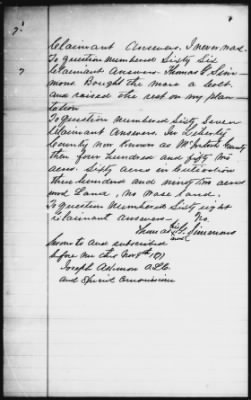 7
7
Claimant Answers. I never was.
To question numbered Sixty Six
Claimant Answers. Thomas G. Sim
mons Bought the mare a colt
and raised the rest on my plan
tation
To question numbered Sixty Seven
Claimant Answers. In Liberty
County now known as McIntosh County
then four hundred and fifty two
acres. Sixty acres in Cultivation
three hundred and ninety two acres
wood Land, no Waste Land.
To question Numbered Sixty eight
Claimant answers No
Thomas his G. Simmons
mark
Sworn to and subscribed
before me this Nov 9th 18
Joseph
and Special Commission